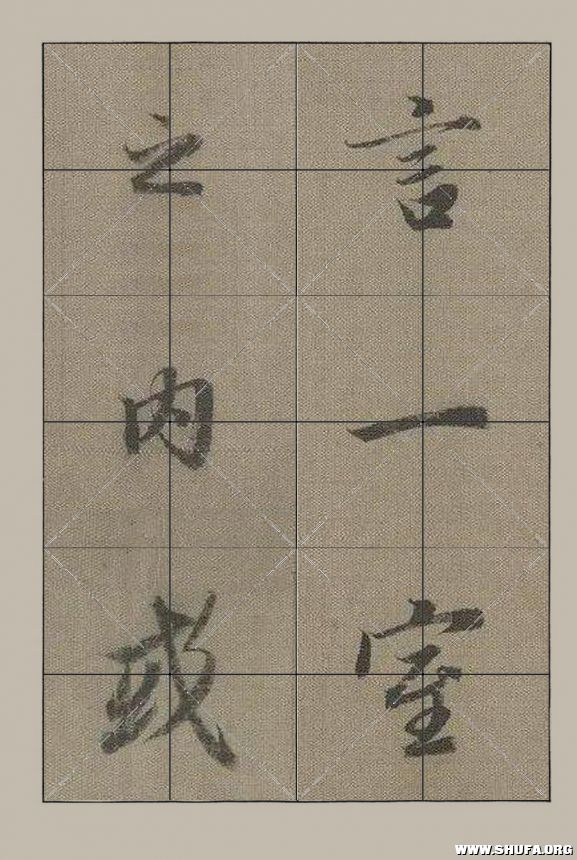 言一室
之内或
WWW.SHUFA.ORG